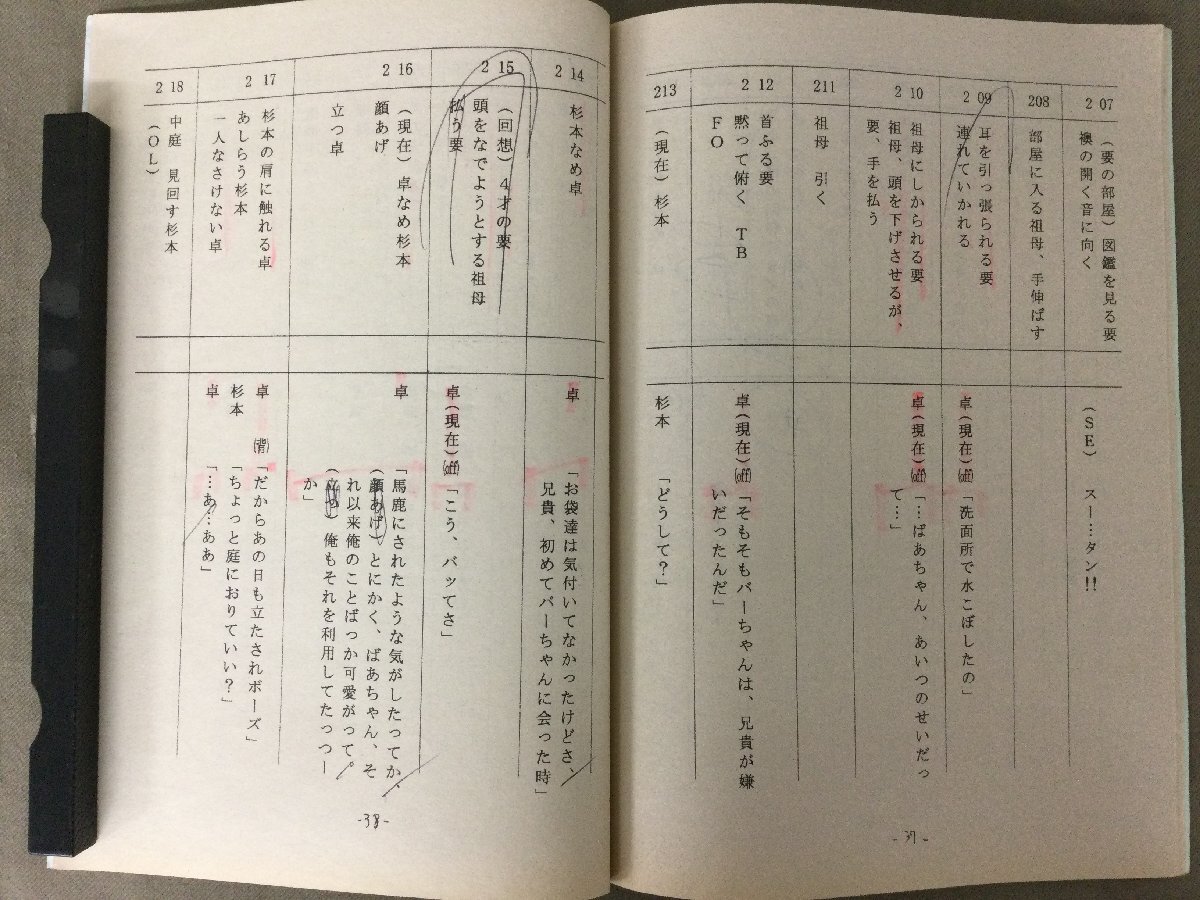 2 07
（要の部屋）図鑑を見る要
襖の開く音に向く
（SE） スー…タン!!
208
部屋に入る祖母、手伸ばす
2 09
耳を引っ張られる要
連れていかれる
卓（現在）(off)「洗面所で水こぼしたの」
2 10
祖母にしかられる要
祖母、頭を下げさせるが、
要、手を払う
卓（現在）(off)「…ばあちゃん、あいつのせいだっ
て…」
211
祖母 引く
2 12
首ふる要
黙って俯く TB
FO
卓（現在）(off)「そもそもバーちゃんは、兄貴が嫌
いだったんだ」
213
（現在）杉本
杉本 「どうして？」
-37-
2 14
杉本なめ卓
卓 「お袋達は気付いてなかったけどさ、
兄貴、初めてバーちゃんに会った時」
2 15
（回想）4才の要
頭をなでようとする祖母
払う要
卓（現在）(off)「こう、バッてさ」
2 16
（現在）卓なめ杉本
顔あげ
立つ卓
卓 「馬鹿にされたような気がしたってか、
（顔あげ）とにかく、ばあちゃん、そ
れ以来俺のことばっか可愛がって。
（立つ）俺もそれを利用してたっつー
か」
2 17
杉本の肩に触れる卓
あしらう杉本
一人なさけない卓
卓 (背)「だからあの日も立たされボーズ」
杉本 「ちょっと庭におりていい？」
卓 「…あ…ああ」
2 18
中庭 見回す杉本
（OL）
-38-